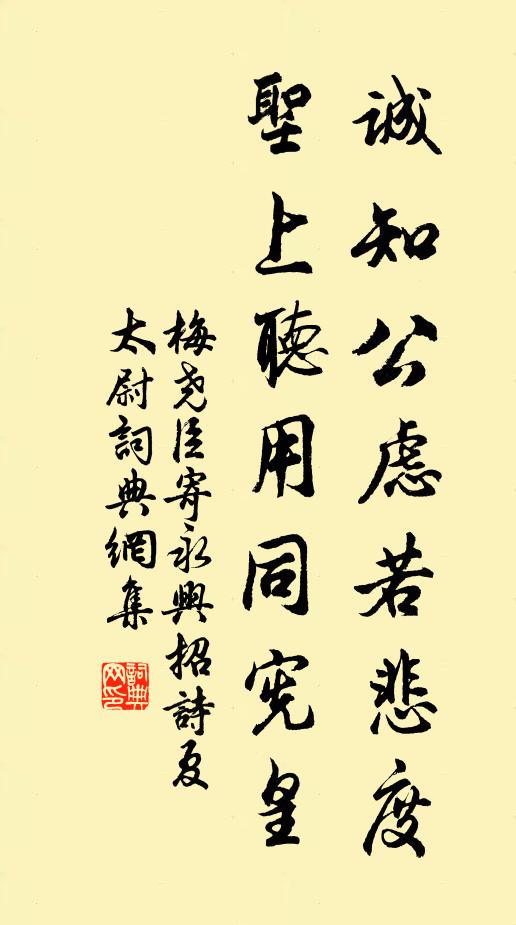 誠知公慮若悲度
聖上聽用同宪皇
梅尧臣寄永興招詩夏
太尉詞典網集
詞典网印